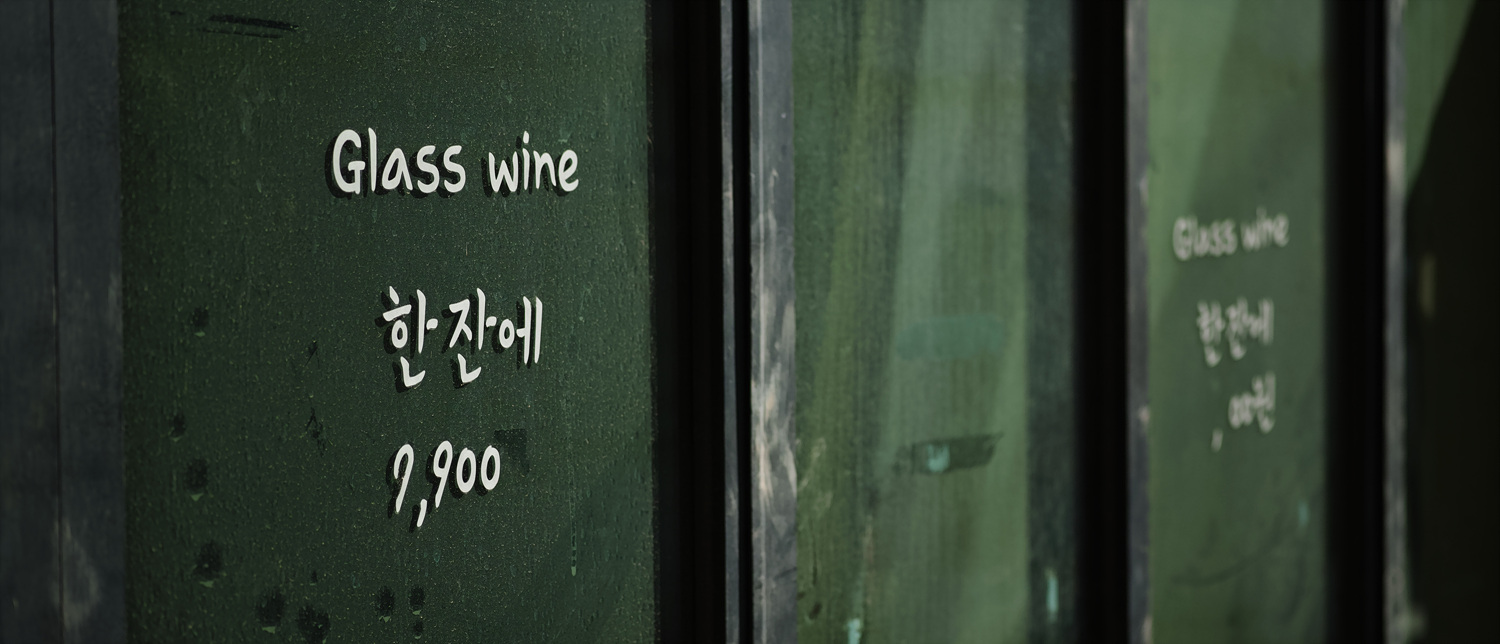 Glass wine
한 잔에
7,900
Glass wine
한 잔에
, 00원